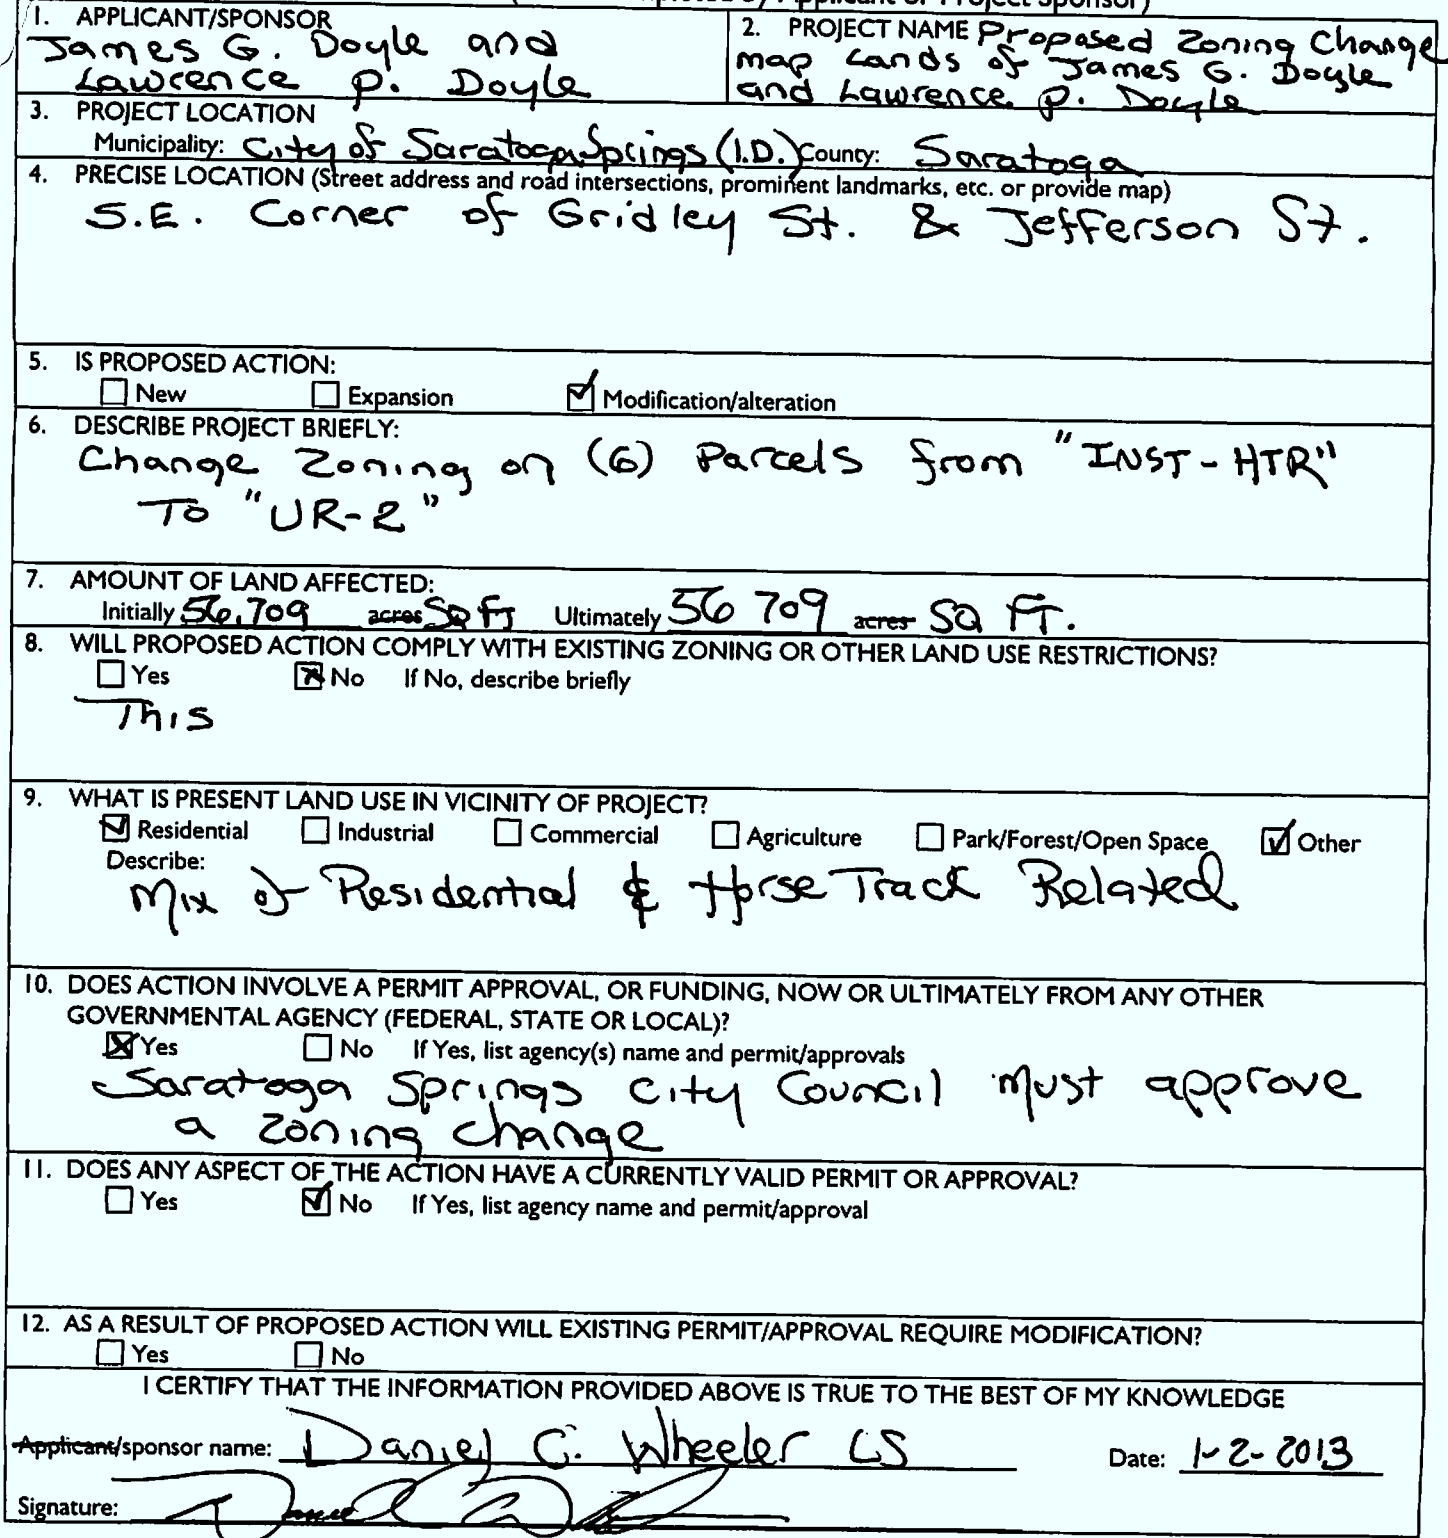 1. APPLICANT/SPONSOR
James G. Doyle and
Lawrence P. Doyle
2. PROJECT NAME Proposed Zoning Change
map Lands of James G. Doyle
and Lawrence P. Doyle
3. PROJECT LOCATION
Municipality: City of Saratoga Springs (I.D.) County: Saratoga
4. PRECISE LOCATION (Street address and road intersections, prominent landmarks, etc. or provide map)
S.E. Corner of Gridley St. & Jefferson St.
5. IS PROPOSED ACTION:
☐ New ☐ Expansion ☑ Modification/alteration
6. DESCRIBE PROJECT BRIEFLY:
Change Zoning on (6) Parcels from "INST-HTR"
To "UR-2"
7. AMOUNT OF LAND AFFECTED:
Initially 56,709 acres SQ FT Ultimately 56 709 acres SQ FT.
8. WILL PROPOSED ACTION COMPLY WITH EXISTING ZONING OR OTHER LAND USE RESTRICTIONS?
☐ Yes ☒ No If No, describe briefly
This
9. WHAT IS PRESENT LAND USE IN VICINITY OF PROJECT?
☑ Residential ☐ Industrial ☐ Commercial ☐ Agriculture ☐ Park/Forest/Open Space ☑ Other
Describe:
Mix of Residential & Horse Track Related
10. DOES ACTION INVOLVE A PERMIT APPROVAL, OR FUNDING, NOW OR ULTIMATELY FROM ANY OTHER
GOVERNMENTAL AGENCY (FEDERAL, STATE OR LOCAL)?
☒ Yes ☐ No If Yes, list agency(s) name and permit/approvals
Saratoga Springs City Council must approve
a zoning change
11. DOES ANY ASPECT OF THE ACTION HAVE A CURRENTLY VALID PERMIT OR APPROVAL?
☐ Yes ☑ No If Yes, list agency name and permit/approval
12. AS A RESULT OF PROPOSED ACTION WILL EXISTING PERMIT/APPROVAL REQUIRE MODIFICATION?
☐ Yes ☐ No
I CERTIFY THAT THE INFORMATION PROVIDED ABOVE IS TRUE TO THE BEST OF MY KNOWLEDGE
Applicant/sponsor name: Daniel C. Wheeler LS Date: 1-2-2013
Signature: